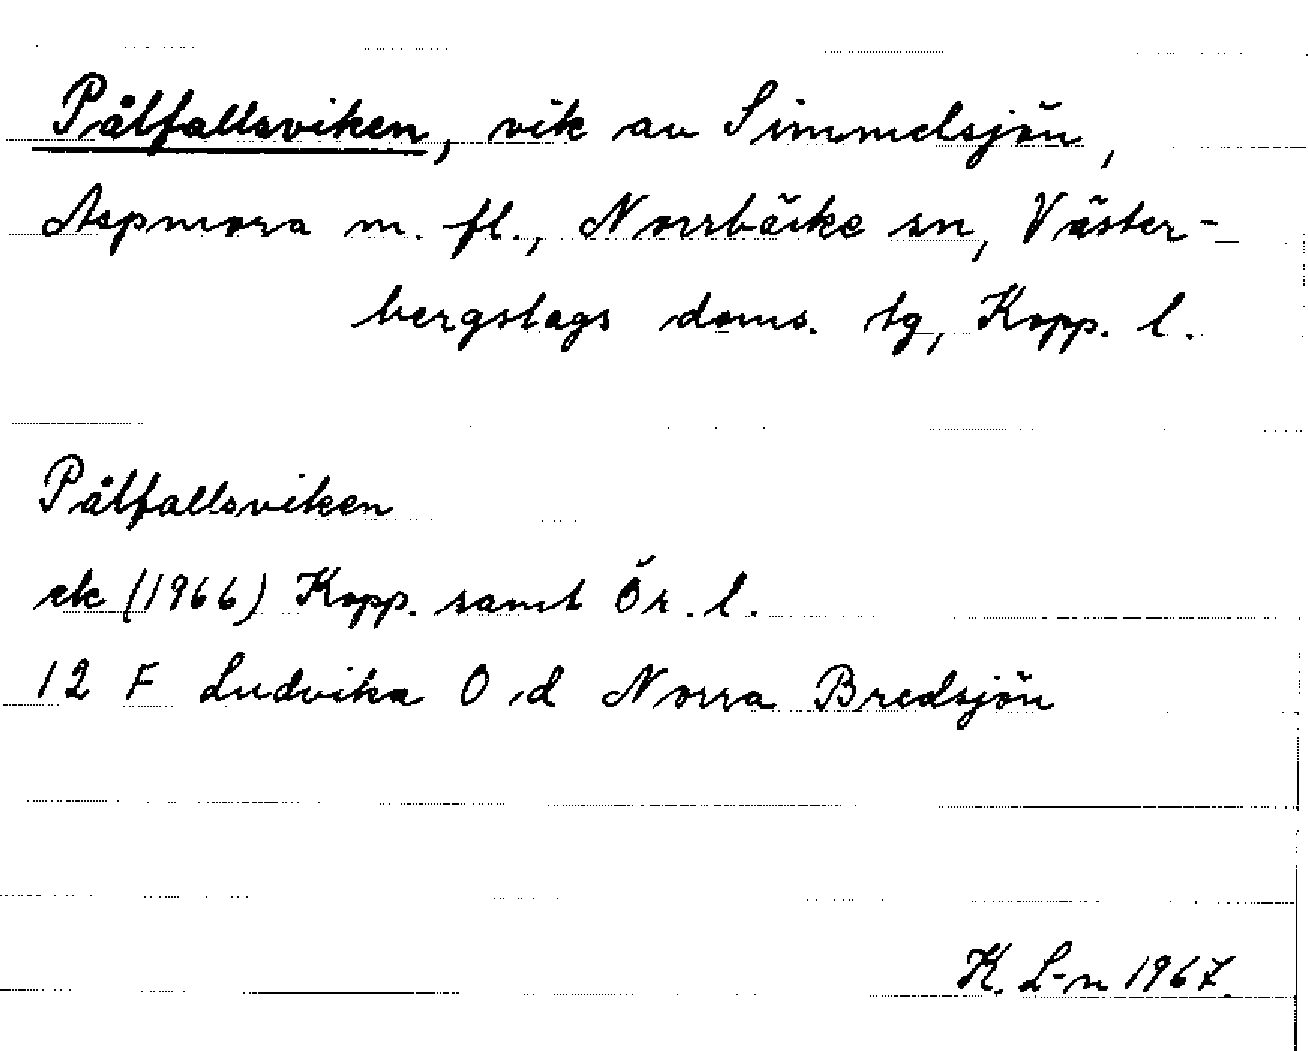 Pålfallsviken, vik av Simmelsjön,
Aspmora m. fl., Norrbäcke sn, Väster-
bergslags doms. tg, Kopp. l.
Pålfallsviken
ek (1966) Kopp. samt Ör. l.
12 F Ludvika O d Norra Bredsjön
K. L-n 1967.